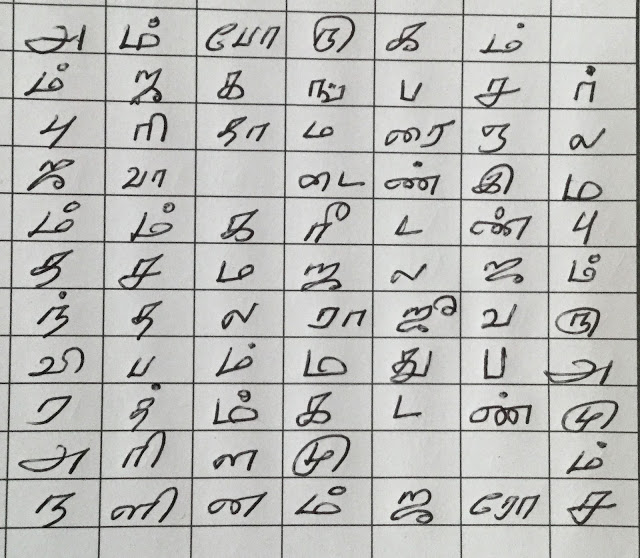 அ ம் போ ரு க ம்
ம் ஜ க ங் ப ச ர்
பு ரி தா ம ரை ல
ஜ வா டை ண் இ ம
ம் ம் க ரீ ட ண் பு
த ச ம ஜ ல ஜ ம்
ந் த ல ரா ஜீ வ ரு
வி ப ம் ம து ப அ
ர த் ம் க ட ண் மு
அ ரி ள மு ம்
ந ளி ன ம் ஜ ரோ ச